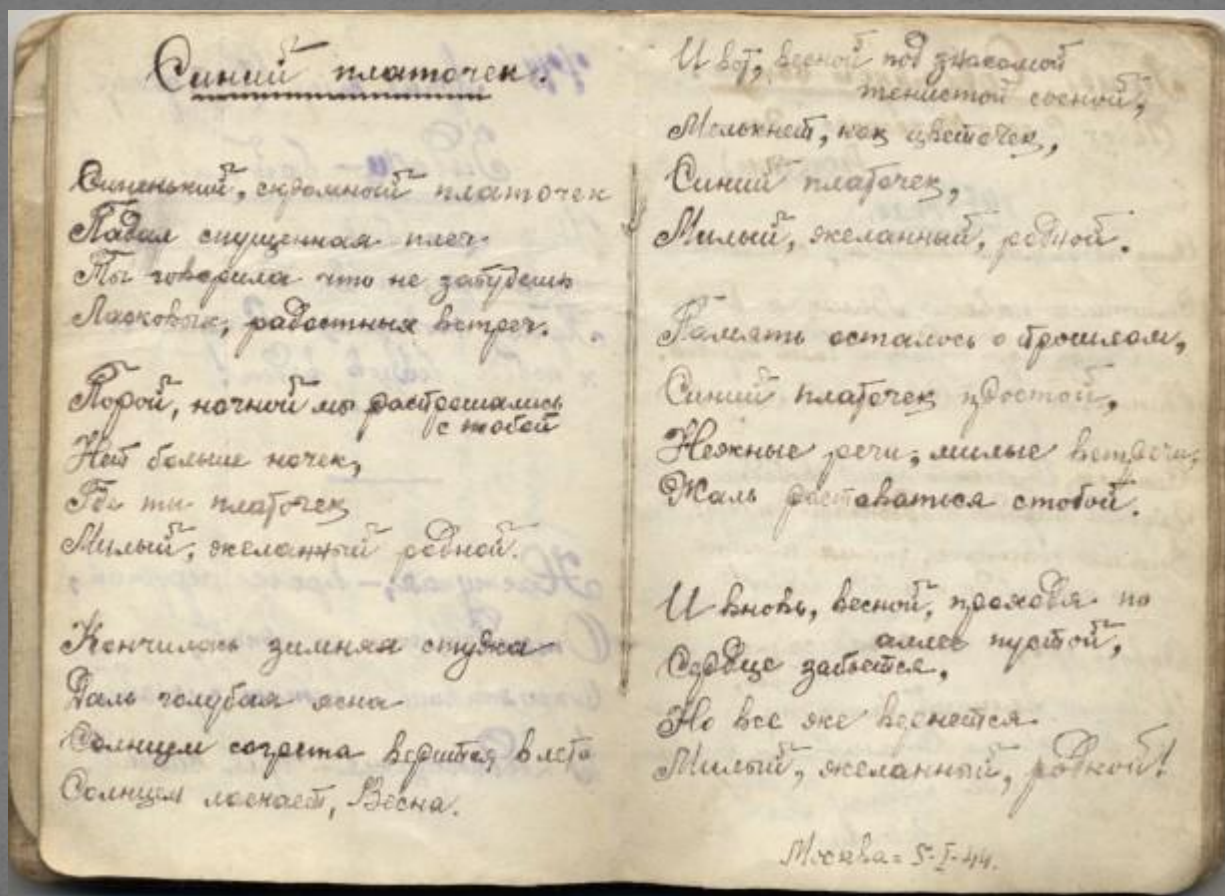 Синий платочек.
Синенький, скромной платочек
Падал спущенная плеч.
Ты говорила что не забудешь
Ласковых, радостных встреч.
Порой, ночной мы распрощались
с тобой
Нет больше ночек,
Где ты платочек
Милый, желанный родной.
Кончилась зимняя стужа
Даль голубая ясна
Солнцем согрета верится в лето
Солнцем ласкает, Весна.
И вот, весной под знакомой
тенистой сосной,
Мелькнет, как цветочек,
Синий платочек,
Милый, желанный, родной.
Память осталось о прошлом,
Синий платочек простой,
Нежные речи, милые встречи,
Жаль раставатися стобой.
И вновь, весной, проходя по
аллее пустой,
Сердце забьется,
Но все же вернется
Милый, желанный, родной!
Москва = 5-I-44.